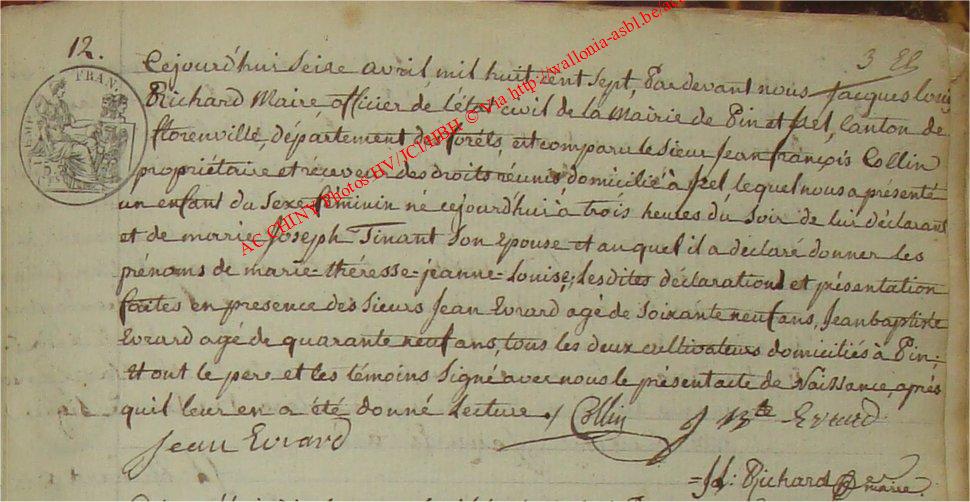 12.
3 El
Cejourd'hui seize avril mil huit cent sept, Pardevant nous Jacques louis
Richard Maire officier de l'état civil de la Mairie de Pin et Izel, Canton de
florenville, département des forêts, est comparu le sieur Jean françois Collin
propriétaire et receveur des droits réunis domicilié à Izel, lequel nous a présenté
un enfant du Sexe feminin né cejourd'hui à trois heures du Soir de lui déclarant
et de marie Joseph Tinant Son épouse et auquel il a déclaré donner les
prénoms de marie=théresse=jeanne=Louise; lesdites déclaration et présentation
faites en presence des Sieurs Jean Evrard agé de soixante neuf ans, Jean baptiste
Evrard agé de quarante neuf ans, tous les deux cultivateurs domiciliés à Pin;
Et ont le pere et les témoins Signé avec nous le présent acte de Naissance, après
qu'il leur en a été donné Lecture.
Collin
J Bte Evrard
Jean Evrard
=JL: Richard maire.
AC CHINY Photos HV/JCl/HBH © Via http://wallonia-asbl.be/ac